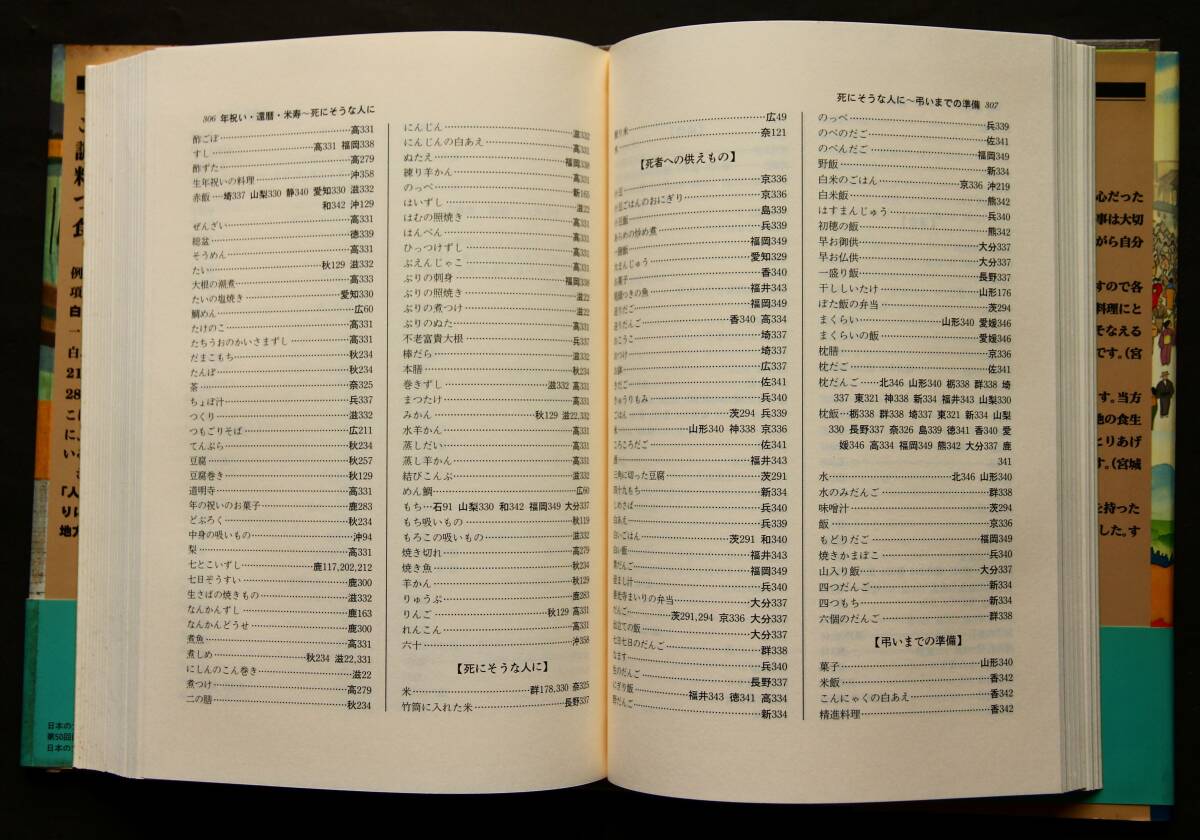 306 年祝い・還暦・米寿〜死にそうな人に
酢ごぼ……高331
すし……高331 福岡338
酢ずた……高279
生年祝いの料理……沖358
赤飯…埼337 山梨330 静340 愛知330 滋332
和342 沖129
ぜんざい……高331
総盆……徳339
そうめん……高331
たい……秋129 滋332
大根の潮煮……高333
たいの塩焼き……愛知330
鯛めん……広60
たけのこ……高331
たちうおのかいさまずし……高331
だまこもち……秋234
たんぽ……秋234
茶……奈325
ちょぼ汁……兵337
つくり……滋332
つもごりそば……広211
てんぷら……秋234
豆腐……秋257
豆腐巻き……秋129
道明寺……高331
年の祝いのお菓子……鹿283
どぶろく……秋234
中身の吸いもの……沖94
梨……高331
七とこいずし……鹿117,202,212
七日ぞうすい……鹿300
生さばの焼きもの……滋332
なんかんずし……鹿163
なんかんどうせ……鹿300
煮魚……高331
煮しめ……秋234 滋22,331
にしんのこん巻き……滋22
煮つけ……高279
二の膳……秋234
にんじん……滋332
にんじんの白あえ……高331
ぬたえ……福岡338
練り羊かん……高331
のっぺ……新165
はいずし……滋22
はむの照焼き……高331
はんぺん……高331
ひっつけずし……高331
ぶえんじゃこ……高331
ぶりの刺身……福岡338
ぶりの照焼き……滋22
ぶりの煮つけ……滋22
ぶりのぬた……高331
不老富貴大根……兵337
棒だら……滋332
本膳……秋234
巻きずし……滋332 高331
まつたけ……高331
みかん……秋129 滋22,332
水羊かん……高331
蒸しだい……高331
蒸し羊かん……高331
結びこんぶ……滋332
めん鯛……広60
もち…石91 山梨330 和342 福岡349 大分337
もち吸いもの……秋119
もろこの吸いもの……滋332
焼き切れ……高279
焼き魚……秋234
羊かん……秋129
りゅうぶ……鹿283
りんご……秋129 高331
れんこん……高331
六十……沖358
【死にそうな人に】
米……群178,330 奈325
竹筒に入れた米……長野337
死にそうな人に〜弔いまでの準備 307
り米……広49
……奈121
【死者への供えもの】
豆……京336
豆ごはんのおにぎり……京336
豆飯……島339
あらめの炒め煮……兵339
膳飯……福岡349
まんじゅう……愛知329
菓子……香340
頭つきの魚……福井343
りだご……福岡349
りだんご……香340 高334
こうこ……埼337
つけ……埼337
鉢……広337
きだご……佐341
きゅうりもみ……兵340
ごはん……茨294 兵339
米……山形340 神338 京336
ころころだご……佐341
……福井343
三角に切った豆腐……茨291
四十九もち……新334
しめさば……兵340
白あえ……兵339
白いごはん……茨291 和340
白い飯……福井343
だんご……福岡349
すまし汁……兵340
善光寺まいりの弁当……大分337
だんご……茨291,294 京336 大分337
出立ての飯……大分337
七日七日のだんご……群338
なます……兵340
生のだんご……長野337
にぎり飯……福井343 徳341 高334
野だんご……新334
のっぺ……兵339
のべのだご……佐341
のべんだご……福岡349
野飯……新334
白米のごはん……京336 沖219
白米飯……熊342
はすまんじゅう……兵340
初穂の飯……熊342
早お御供……大分337
早お仏供……大分337
一盛り飯……長野337
干ししいたけ……山形176
ぼた飯の弁当……茨294
まくらい……山形340 愛媛346
まくらいの飯……愛媛346
枕膳……京336
枕だご……佐341
枕だんご……北346 山形340 栃338 群338 埼
337 東321 神338 新334 福井343 山梨330
枕飯…栃338 群338 埼337 東321 新334 山梨
330 長野337 奈326 島339 徳341 香340 愛
媛346 高334 福岡349 熊342 大分337 鹿
341
水……北346 山形340
水のみだんご……群338
味噌汁……茨294
飯……京336
もどりだご……福岡349
焼きかまぼこ……兵340
山入り飯……大分337
四つだんご……新334
四つもち……新334
六個のだんご……群338
【弔いまでの準備】
菓子……山形340
米飯……香342
こんにゃくの白あえ……香342
精進料理……香342
心だった
事は大切
がら自分
すので各
料理にと
そなえる
です。(宮
す。当方
地の食生
とりあげ
す。(宮城
を持った
した。す
例
項
白
一
白
21
28
こに
に、
い
「人
りに
地方
日本の
第50回
日本の